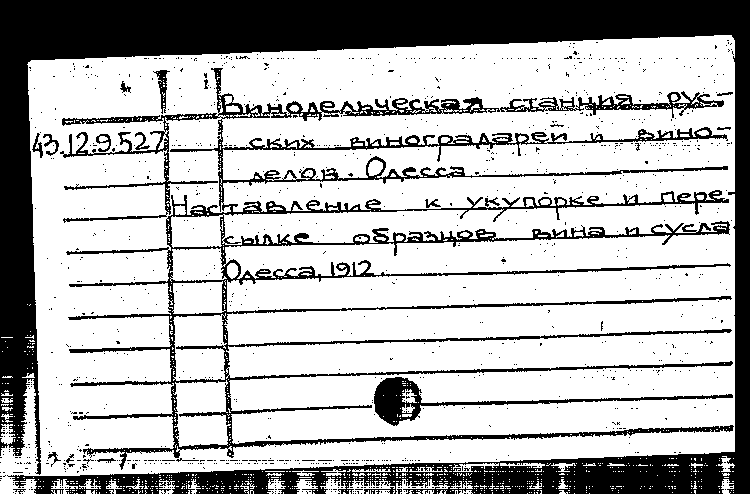 Винодельческая станция рус-
43.12.9.527 ских виноградарей и вино-
делов. Одесса.
Наставление к укупорке и пере-
сылке образцов вина и сусла
Одесса, 1912.